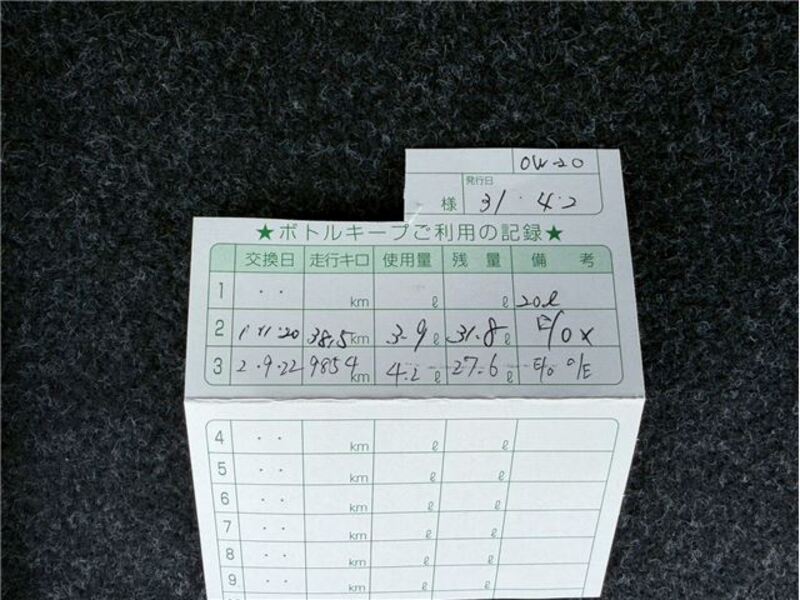 0W-20
発行日
様 31.4.2
★ボトルキープご利用の記録★
交換日 走行キロ 使用量 残量 備考
1 ・・ km ℓ ℓ 20ℓ
2 1.11.20 38.5km 3.9ℓ 31.8ℓ
3 2.9.22 9854km 4.2ℓ 27.6ℓ E/o O/E
4 ・・ km ℓ ℓ
5 ・・ km ℓ ℓ
6 ・・ km ℓ ℓ
7 ・・ km ℓ ℓ
8 ・・ km ℓ ℓ
9 ・・ km ℓ ℓ